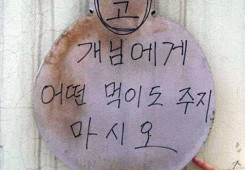 고
개님에게
어떤 먹이도 주지
마시오